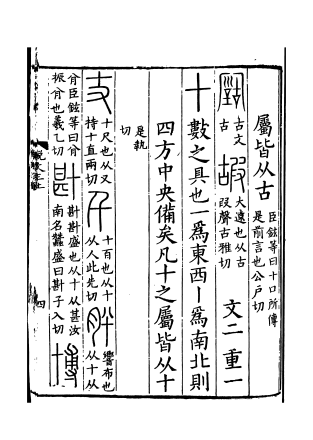 屬皆从古 臣鉉等曰十口所傳是前言也公戶切
𠖠 古文古 嘏 大遠也从古叚聲古雅切 文二 重一
十 數之具也一爲東西丨爲南北則
四方中央備矣凡十之屬皆从十
是執切
丈 十尺也从又持十直兩切 千 十百也从十从人此先切 肸 響布也从十从
㑶臣鉉等曰㑶振㑶也羲乙切 卙 卙卙盛也从十从甚汝南名蠶盛曰卙子入切 博